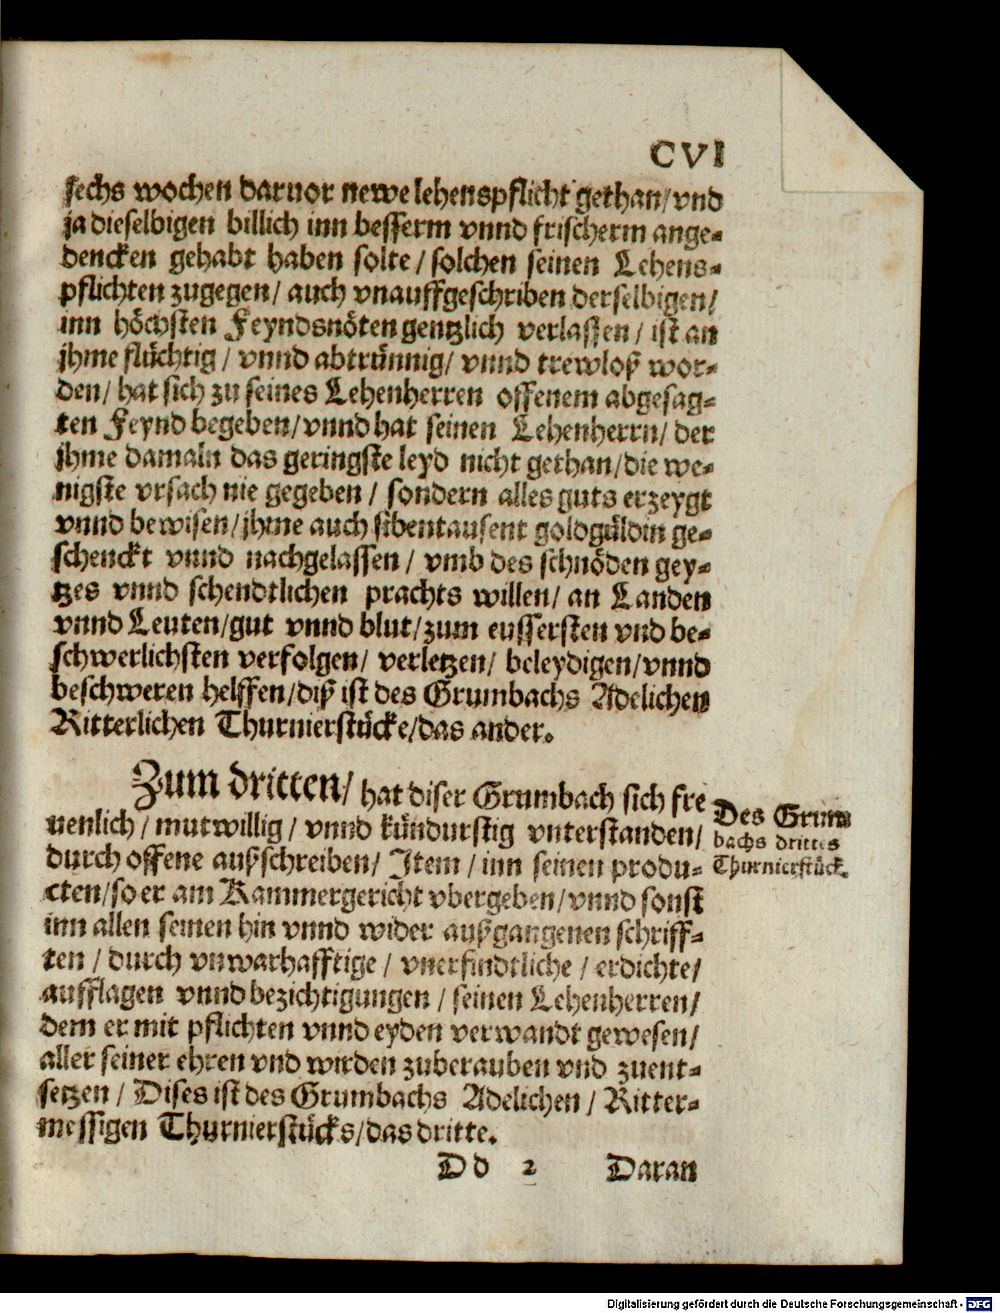 CVI
sechs wochen daruor newe lehenspflicht gethan/ vnd
ja dieselbigen billich inn besserm vnnd frischerm ange⸗
dencken gehabt haben solte / solchen seinen Lehens⸗
pflichten zugegen / auch vnauffgeschriben derselbigen /
inn höchsten Feyndsnöten gentzlich verlassen / ist an
jhme flüchtig / vnnd abtrünnig / vnnd trewloß wor⸗
den / hat sich zu seines Lehenherren offenem abgesag⸗
ten Feynd begeben / vnnd hat seinen Lehenherrn / der
jhme damaln das geringste leyd nicht gethan / die we⸗
nigste vrsach nie gegeben / sondern alles guts erzeygt
vnnd bewisen / jhme auch sibentausent goldgüldin ge⸗
schenckt vnnd nachgelassen / vmb des schnöden gey⸗
tzes vnnd schendtlichen prachts willen / an Landen
vnnd Leuten / gut vnnd blut / zum eussersten vnd be⸗
schwerlichsten verfolgen / verletzen / beleydigen / vnnd
beschweren helffen / diß ist des Grumbachs Adelichen
Ritterlichen Thurnierstücke / das ander.
Zum dritten / hat diser Grumbach sich fre
uenlich / mutwillig / vnnd kündurstig vnterstanden /
durch offene außschreiben / Item / inn seinen produ⸗
cten / so er am Kammergericht vbergeben / vnnd sonst
inn allen seinen hin vnnd wider außgangenen schriff⸗
ten / durch vnwarhafftige / vnerfindtliche / erdichte /
aufflagen vnnd bezichtigungen / seinen Lehenherren /
dem er mit pflichten vnnd eyden verwandt gewesen /
aller seiner ehren vnd wirden zuberauben vnd zuent⸗
setzen / Dises ist des Grumbachs Adelichen / Ritter⸗
messigen Thurnierstücks / das dritte.
Des Grum
bachs drittes
Thurnierstück.
Dd 2 Daran
Digitalisierung gefördert durch die Deutsche Forschungsgemeinschaft - DFG